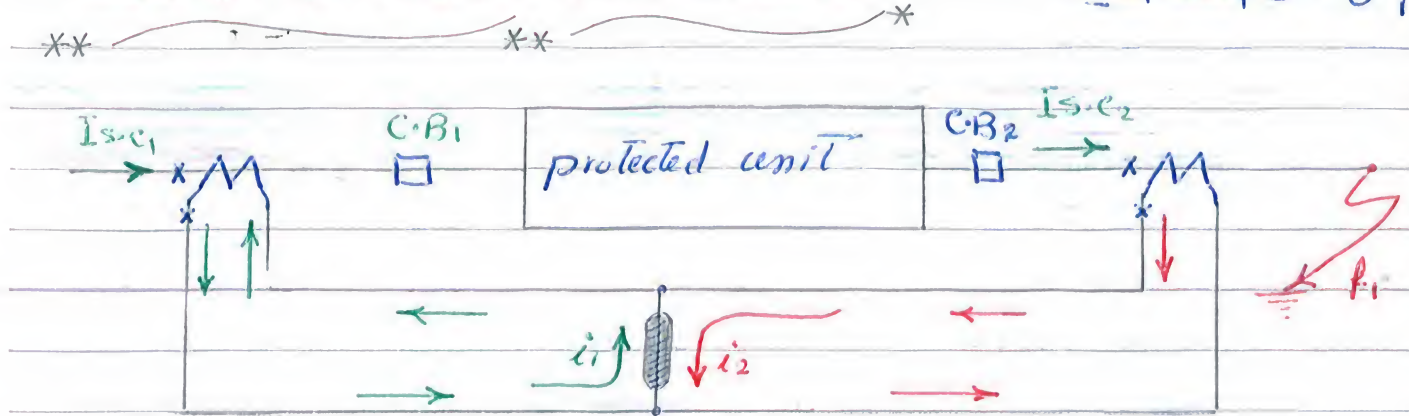 Is.c₁ C.B₁ protected unit C.B₂ Is.c₂
i₁ i₂ f₁